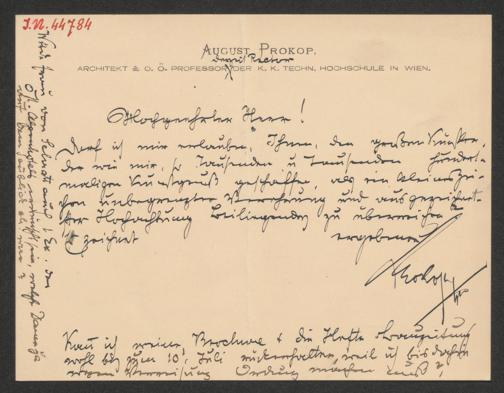 I.N. 44784
August Prokop,
Architekt & O. Ö. Professor der K. K. Techn. Hochschule in Wien.
Hochgeehrter Herr!
Darf ich mir erlauben, Ihnen, den großen Künstler,
der wie mir, so Tausenden u Tausenden hundert-
maligen Kunstgenuß geschaffen, als ein kleines Zei-
chen unbegrenzter Verehrung und ausgezeichnet-
ster Hochachtung Beiliegendes zu überreichen
zeichnet ergebenst
Prokop
Kann ich meine Brochure & die Hefte Bauzeitung
wohl bis zum 10. Juli rückerhalten, weil ich bis dahin
wegen Verreisung Ordnung machen muß?